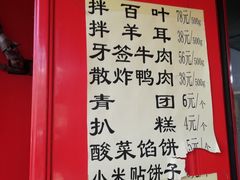 拌百叶 78元/500g
拌羊耳 38元/500g
牙签牛肉 56元/500g
散炸鸭肉 38元/500g
青团 6元/个
扒糕 4元/个
酸菜馅饼 5元/个
小米贴饼子